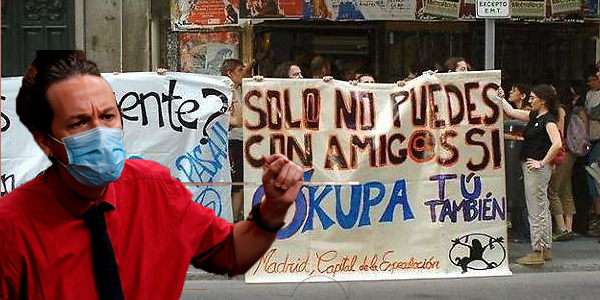 EXCEPTO
E.M.T.
ente?
SOLO NO PUEDES
CON AMIG@S SI
OKUPA TÚ
TAMBIÉN
Madrid, Capital de la Especulación